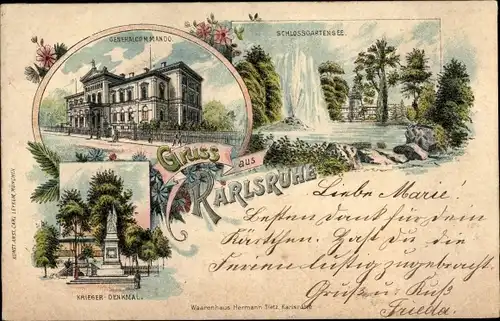 GENERALCOMMANDO.
SCHLOSSGARTENSEE.
Gruss
aus
KARLSRUHE
Liebe Marie!
Besten Dank für dein
Kärtchen. Hast du die
Ferien lustig zugebracht.
Gruß u. Kuß
Frieda.
KRIEGER-DENKMAL.
Waarenhaus Hermann Tietz, Karlsruhe
KUNST-ANST. CARL
MÜNCHEN.